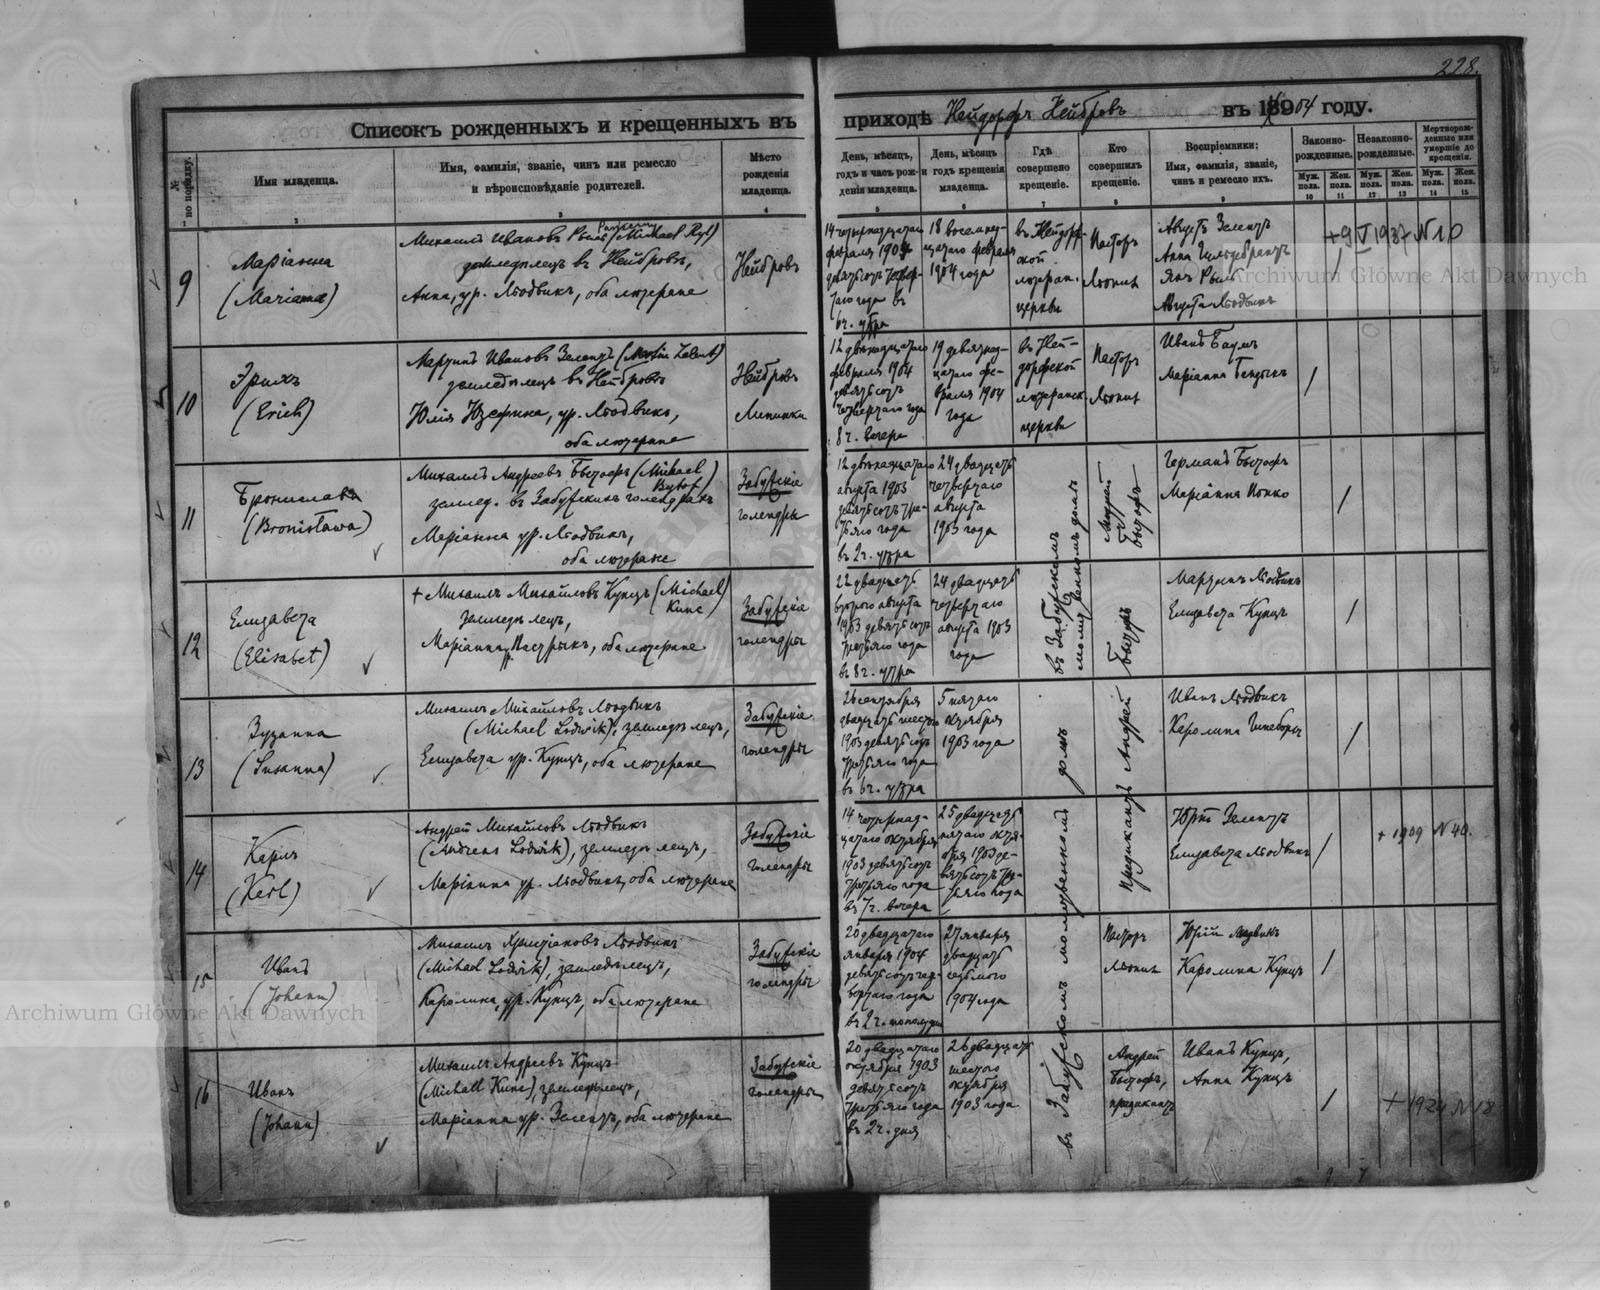 228.
Списокъ рожденныхъ и крещенныхъ въ приходѣ Нейдорфъ Нейбровъ въ 1904 году.
№ по порядку.
Имя младенца.
Имя, фамилія, званіе, чинъ или ремесло
и вѣроисповѣданіе родителей.
Мѣсто
рожденія
младенца.
День, мѣсяцъ,
годъ и часъ рож-
денія младенца.
День, мѣсяцъ
и годъ крещенія
младенца.
Гдѣ
совершено
крещеніе.
Кто
совершилъ
крещеніе.
Воспріемники:
Имя, фамилія, званіе,
чинъ и ремесло ихъ.
Законно-
рожденные.
Незаконно-
рожденные.
Мертворож-
денные или
умершіе до
крещенія.
Муж. пола.
Жен. пола.
Муж. пола.
Жен. пола.
Муж. пола.
Жен. пола.
1 2 3 4 5 6 7 8 9 10 11 12 13 14 15
9
Маріанна
(Marianna)
Михаилъ Ивановъ Рыль (Michael Ryl)
земледѣлецъ въ Нейбровѣ,
Анна, ур. Людвикъ, оба лютеране
Нейбровъ
14 четырнадцатаго
февраля 1904
девятьсотъ четвер-
таго года въ
6 ч. утра
18 восемнад-
цатаго февраля
1904 года
въ Нейдорф-
ской
лютеран.
церкви
Пасторъ
Августъ Зелентъ
Анна Гильдебрантъ
Янъ Рыль
Августа Людвикъ
/
+ 9 V 1937 N 10
10
Эрихъ
(Erich)
Мартинъ Ивановъ Зелентъ (Martin Zelent)
земледѣлецъ въ Нейбровѣ
Юлія Юзефина, ур. Людвикъ,
оба лютеране
Нейбровъ
Липинки
12 двѣнадцатаго
февраля 1904
девятьсотъ
четвертаго года
8 ч. вечера
19 девятнад-
цатаго фе-
враля 1904
года
въ Ней-
дорфской
лютеранск.
церкви
Пасторъ
Иванъ Баумъ
/
11
Брониславa
(Bronisława)
Михаилъ Андреевъ Бытофъ (Michael
Bytof)
землед. въ Забужскихъ голендрахъ
Маріанна ур. Людвикъ,
оба лютеране
Забужскіе
голендры
12 двѣнадцатаго
августа 1903
девятьсотъ тре-
тьяго года
въ 2 ч. утра
24 двадцать
четвертаго
августа
1903 года
Андрей
Бытофъ
Германъ Бытофъ
Маріанна Попко
/
12
Елизавета
(Elisabet)
+ Михаилъ Михайловъ Кунцъ (Michael
Kunc)
земледѣлецъ,
Маріанна Пастрыкъ, оба лютеране
Забужскіе
голендры
22 двадцать
второго августа
1903 девятьсотъ
третьяго года
въ 8 ч. утра
24 двадцать
четвертаго
августа 1903
года
въ Забужскомъ
молитвенномъ домѣ
Мартинъ Людвикъ
Елизавета Кунцъ
/
13
Зузанна
(Susanna)
Михаилъ Михайловъ Людвикъ
(Michael Lodwik), земледѣлецъ,
Елизавета ур. Кунцъ, оба лютеране
Забужскіе
голендры
26 сентября
двадцать шестого
1903 девятьсотъ
третьяго года
въ 6 ч. утра
5 пятаго
октября
1903 года
Предикантъ Андрей Бытофъ
Иванъ Людвикъ
/
14
Карлъ
(Karl)
Андрей Михайловъ Людвикъ
(Andreas Lodwik), земледѣлецъ,
Маріанна ур. Людвикъ, оба лютеране
Забужскіе
голендры
14 четырнад-
цатаго октября
1903 девятьсотъ
третьяго года
въ 7 ч. вечера
25 двадцать
пятаго октя-
бря 1903 де-
вятьсотъ тре-
тьяго года
Юрій Зелентъ
Елизавета Людвикъ
/
+ 1909 N 40.
15
Иванъ
(Johann)
Михаилъ Христіановъ Людвикъ
(Michael Lodwik), земледѣлецъ,
Каролина, ур. Кунцъ, оба лютеране
Забужскіе
голендры
20 двадцатаго
января 1904
девятьсотъ чет-
вертаго года
въ 2 ч. пополудни
27 января
двадцать
седьмого
1904 года
въ Забужскомъ молитвенномъ домѣ
Пасторъ
Юрій Людвикъ
Каролина Кунцъ
/
16
Иванъ
(Johann)
Михаилъ Андреевъ Кунцъ
(Michael Kunc), земледѣлецъ,
Маріанна ур. Зелентъ, оба лютеране
Забужскіе
голендры
20 двадцатаго
октября 1903
девятьсотъ
третьяго года
въ 2 ч. дня
26 двадцать
шестого
октября
1903 года
Андрей
Бытофъ,
предикантъ
Иванъ Кунцъ,
Анна Кунцъ
/
+ 1924 N 18
Archiwum Główne Akt Dawnych
Archiwum Główne Akt Dawnych